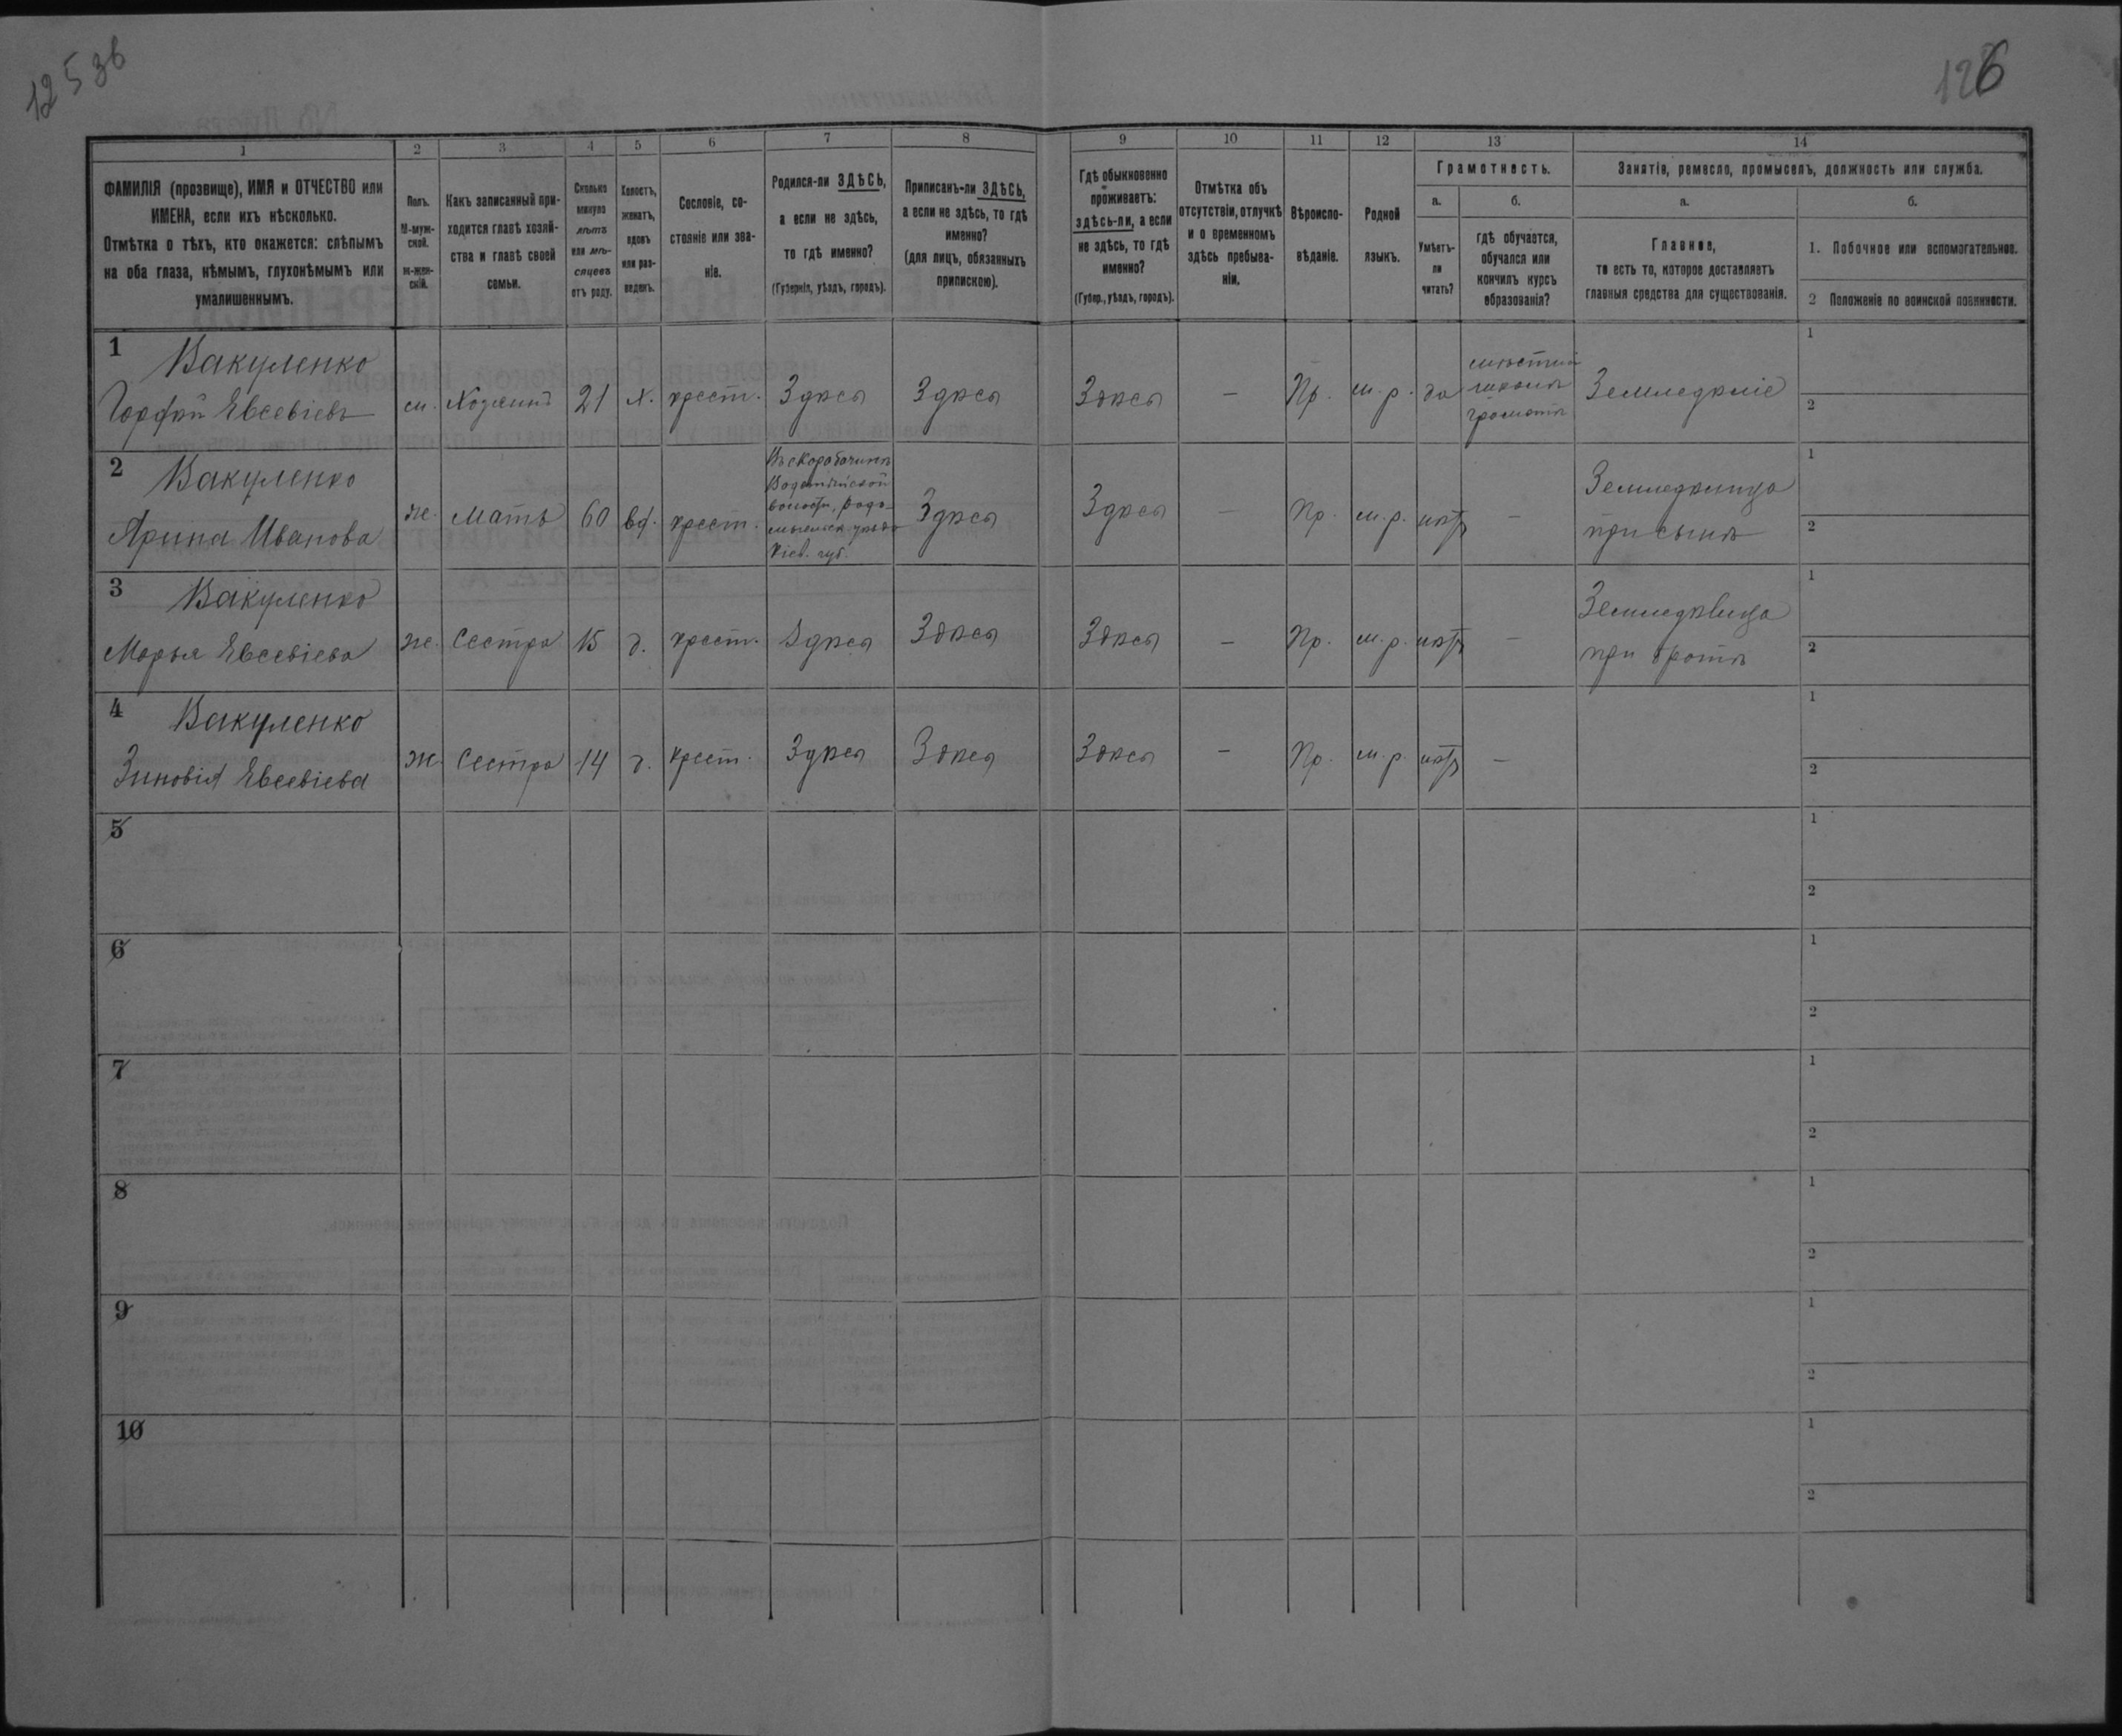 12536
126
1
2
3
4
5
6
7
8
9
10
11
12
13
14
ФАМИЛІЯ (прозвище), ИМЯ и ОТЧЕСТВО или
ИМЕНА, если ихъ нѣсколько.
Отмѣтка о тѣхъ, кто окажется: слѣпымъ
на оба глаза, нѣмымъ, глухонѣмымъ или
умалишеннымъ.
Полъ.
М-муж-
ской.
ж-жен-
скій.
Какъ записанный при-
ходится главѣ хозяй-
ства и главѣ своей
семьи.
Сколько
минуло
лѣтъ
или мѣ-
сяцевъ
отъ роду.
Холостъ,
женатъ,
вдовъ
или раз-
веденъ.
Сословіе, со-
стояніе или зва-
ніе.
Родился-ли ЗДѢСЬ,
а если не здѣсь,
то гдѣ именно?
(Губернія, уѣздъ, городъ).
Приписанъ-ли ЗДѢСЬ,
а если не здѣсь, то гдѣ
именно?
(для лицъ, обязанныхъ
припискою).
Гдѣ обыкновенно
проживаетъ:
здѣсь-ли, а если
не здѣсь, то гдѣ
именно?
(Губер., уѣздъ, городъ).
Отмѣтка объ
отсутствіи, отлучкѣ
и о временномъ
здѣсь пребыва-
ніи.
Вѣроиспо-
вѣданіе.
Родной
языкъ.
Грамотность.
а.
Умѣетъ-
ли
читать?
б.
гдѣ обучается,
обучался или
кончилъ курсъ
образованія?
Занятіе, ремесло, промыселъ, должность или служба.
а.
Главное,
то есть то, которое доставляетъ
главныя средства для существованія.
б.
1. Побочное или вспомогательное.
2 Положеніе по воинской повинности.
1
Вакуленко
Евсевіевъ
м.
Хозяинъ
21
х.
крест.
Здѣсь
Здѣсь
Здѣсь
—
Пр.
м. р.
да
школѣ
грамотѣ
Земледѣліе
1
2
2
Вакуленко
Арина Иванова
ж.
мать
60
вд.
крест.
волости, Радо-
мысльск. уѣзда
Кіев. губ.
Здѣсь
Здѣсь
—
Пр.
м. р.
нѣтъ
—
Земледѣлица
при сынѣ
1
2
3
Вакуленко
Марья Евсевіева
ж.
Сестра
15
д.
крест.
Здѣсь
Здѣсь
Здѣсь
—
Пр.
м. р.
нѣтъ
—
при братѣ
1
2
4
Вакуленко
Зиновія Евсевіева
ж.
Сестра
14
д.
крест.
Здѣсь
Здѣсь
Здѣсь
—
Пр.
м. р.
нѣтъ
—
1
2
5
1
2
6
1
2
7
1
2
8
1
2
9
1
2
10
1
2